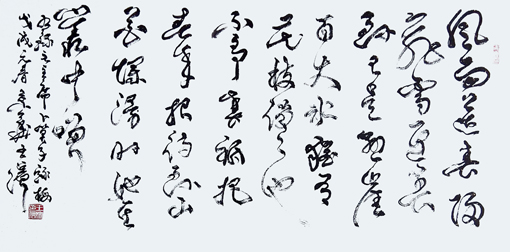 風雨送春歸
飛雪迎春
到已是懸崖
百丈冰猶有
花枝俏俏也
不争春祇把
春來報待到山
花爛漫時她在
叢中笑
毛主席卜算子詠梅
戊戌元春